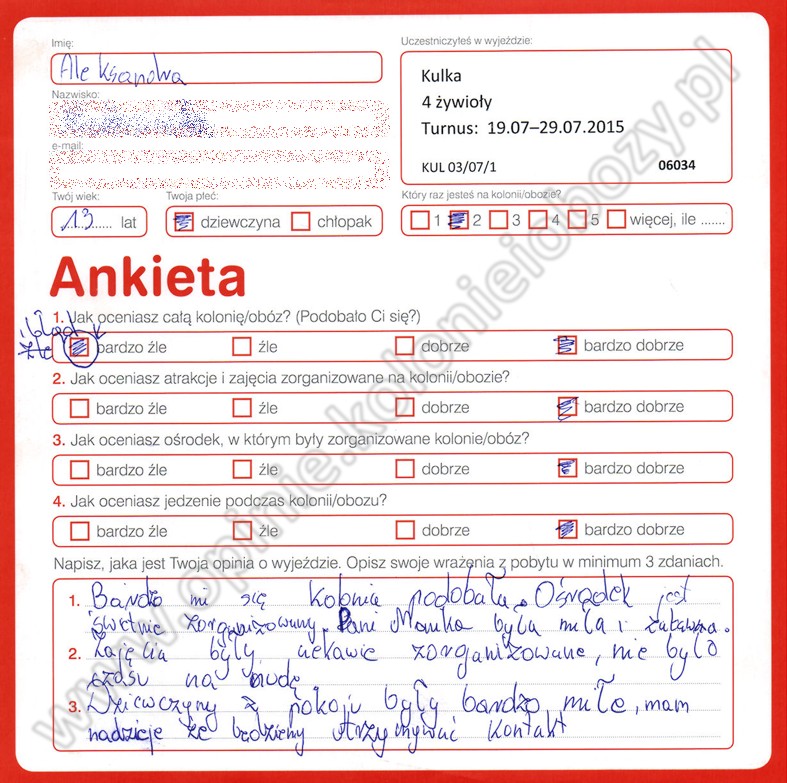 Imię:
Aleksandra
Nazwisko:
e-mail:
Uczestniczyłeś w wyjeździe:
Kulka
4 żywioły
Turnus: 19.07–29.07.2015
KUL 03/07/1 06034
Twój wiek:
13 lat
Twoja płeć:
dziewczyna chłopak
Który raz jesteś na kolonii/obozie?
1 2 3 4 5 więcej, ile .......
Ankieta
1. Jak oceniasz całą kolonię/obóz? (Podobało Ci się?)
błąd
źle
bardzo źle źle dobrze bardzo dobrze
2. Jak oceniasz atrakcje i zajęcia zorganizowane na kolonii/obozie?
bardzo źle źle dobrze bardzo dobrze
3. Jak oceniasz ośrodek, w którym były zorganizowane kolonie/obóz?
bardzo źle źle dobrze bardzo dobrze
4. Jak oceniasz jedzenie podczas kolonii/obozu?
bardzo źle źle dobrze bardzo dobrze
Napisz, jaka jest Twoja opinia o wyjeździe. Opisz swoje wrażenia z pobytu w minimum 3 zdaniach.
1. Bardzo mi się kolonia podobała. Ośrodek jest
świetnie zorganizowany. Pani Monika była miła i zabawna.
2. Zajęcia były ciekawie zorganizowane, nie było
czasu na nudę
3. Dziewczyny z pokoju były bardzo miłe, mam
nadzieje że będziemy utrzymywać kontakt
www.opinie.kolonieiobozy.pl